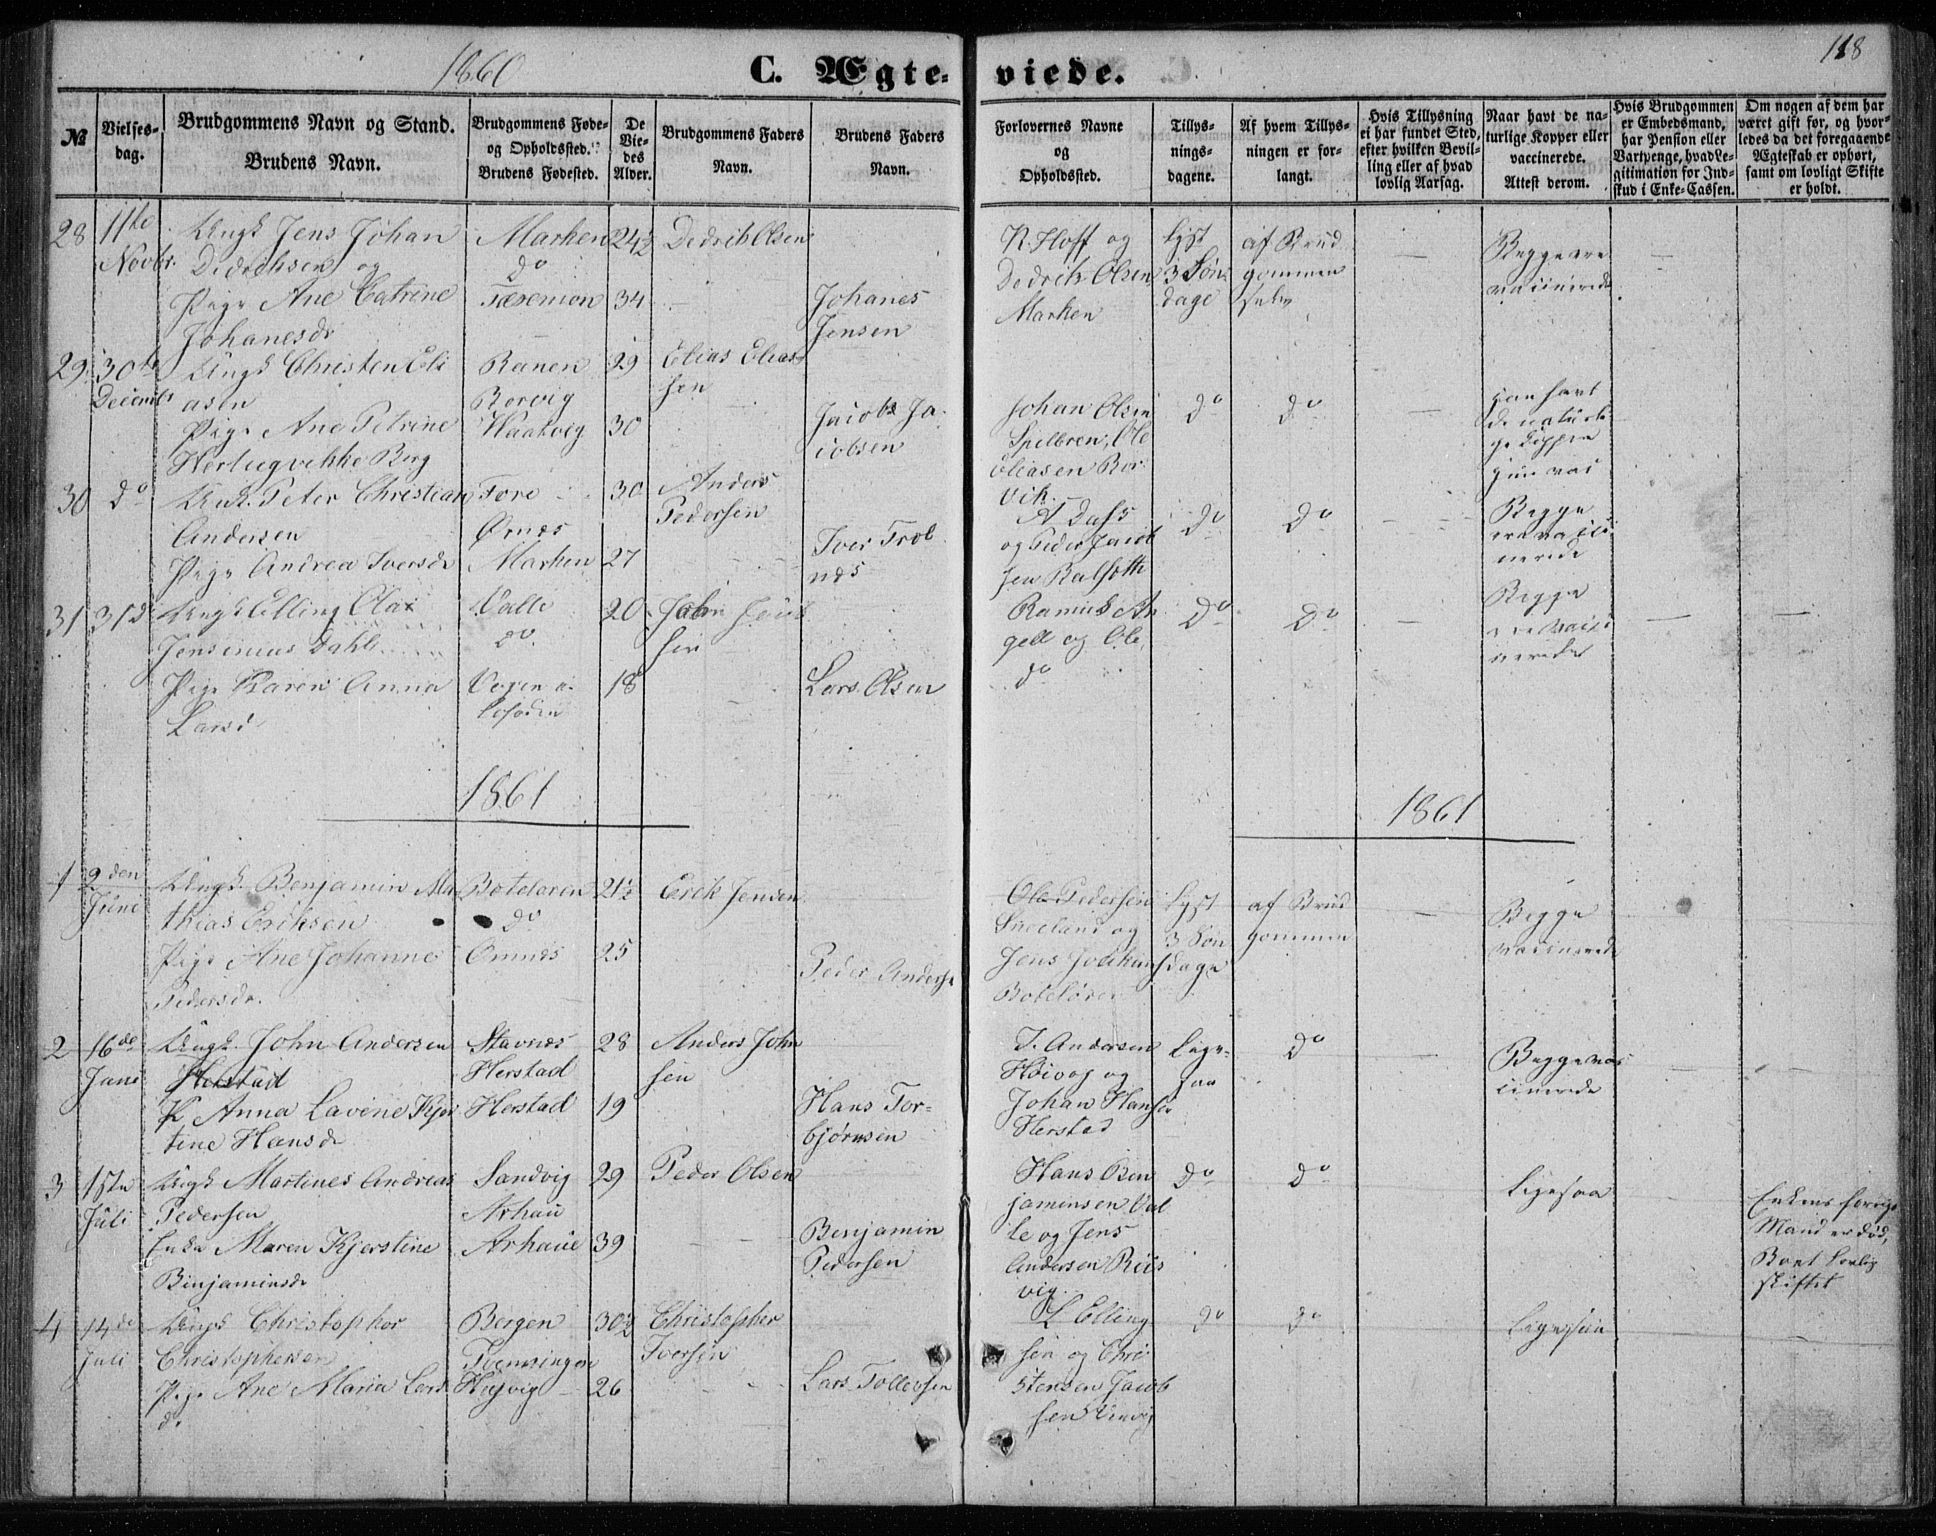 1860 C. Ægteviede. 118
№
Vielses-
dag.
Brudgommens Navn og Stand.
Brudens Navn.
Brudgommens Føde-
og Opholdssted.
Brudens Fødested.
De
Vie-
des
Alder.
Brudgommens Faders
Navn.
Brudens Faders
Navn.
Forlovernes Navne
og
Opholdssted.
Tillys-
nings-
dagene.
Af hvem Tillys-
ningen er for-
langt.
Hvis Tillysning
ei har fundet Sted,
efter hvilken Bevil-
ling eller af hvad
lovlig Aarsag.
Naar havt de na-
turlige Kopper eller
vaccinerede.
Attest derom.
Hvis Brudgommen
er Embedsmand,
har Pension eller
Vartpenge, hvad Le-
gitimation for Ind-
skud i Enke-Cassen.
Om nogen af dem har
været gift for, og hvor-
ledes da det foregaaende
Ægteskab er ophørt,
samt om lovligt Skifte
er holdt.
28
11te
Novbr.
Ungk Jens Johan
Didriksen og
Pige Ane Catrine
Johanesdr
Marken
do
24½
34
Dedrik Olsen
Johanes
Jensen
R. Hoff og
Dedrik Olsen
Marken
Lyst
3 Søn
dage
af Brud
gommen
selv
Begge ere
vacinerede
29
30te
Decemb
Ungk Christen Eli
asen
Pige Ane Petrine
Hertugvikke Berg
Ranen
Rorvig
29
30
Elias Elias
sen
Jacob Ja
cobsen
Johan Olsen
Ole
Eliasen Ror
vik.
do
do
han havt
de naturli
ge Kopper
hun vac
30
do
Ungk. Peter Christian
Andersen
Pige Andrea Iversdr
Tore
Ørnes
Marken
30
27
Anders
Pedersen
Iver
A Dass
og Peder Jacob
sen
do
do
Begge
ere vacci
nerede
31
31d
Ungk Elling Olai
Jensenius Dahl
Pige Karen Anna
Larsd
Valle
do
20
18
John
sen
Lars Olsen
gell og Ole
do
do
do
Begge
ere vacci
nerede
1861
1861
1
2den
Juni
Ungk. Benjamin Ma
thias Eriksen
Pige Ane Johanne
Pedersdr.
Boteloren
do
Ornes
21½
25
Erik Jensen
Peder Anderse
Ole Pedersen
Sneeland og
Jens
Boteløren
Lyst
3 Søn
dage
af Brud
gommen
Begge
vacinerede
2
16de
Juni
Ungk. John Andersen
Herstad
P Anna Lavine Kjer
tine Hansdr
Stavnes
Herstad
Herstad
28
19
Anders John
sen
Hans Tor-
bjørnsen
J. Andersen
Høivog og
Johan Hansen
Herstad
Lige-
saa
do
Begge vac
cinerede
3
1ste
Juli
Ungk Martines Andreas
Pedersen
Enke Maren Kjerstine
Binjaminsdr
Sandvig
Arhau
Arhaue
29
39
Peder Olsen
Benjamin
Pedersen
Hans Ben
jaminsen Val
le og Jens
Andersen Riis
vig.
do
do
Ligesaa
Enkens forrige
Mand er død,
Boet lovlig
skiftet
4
14de
Juli
Ungk Christophor
Christophersen
Pige Ane Maria Lars
dr
Bergen
Højvig
30½
26
Christopher
Iversen
Lars Tollevsen
L Elling
sen og Chri
stensen Jacob
sen
do
do
Ligesaa